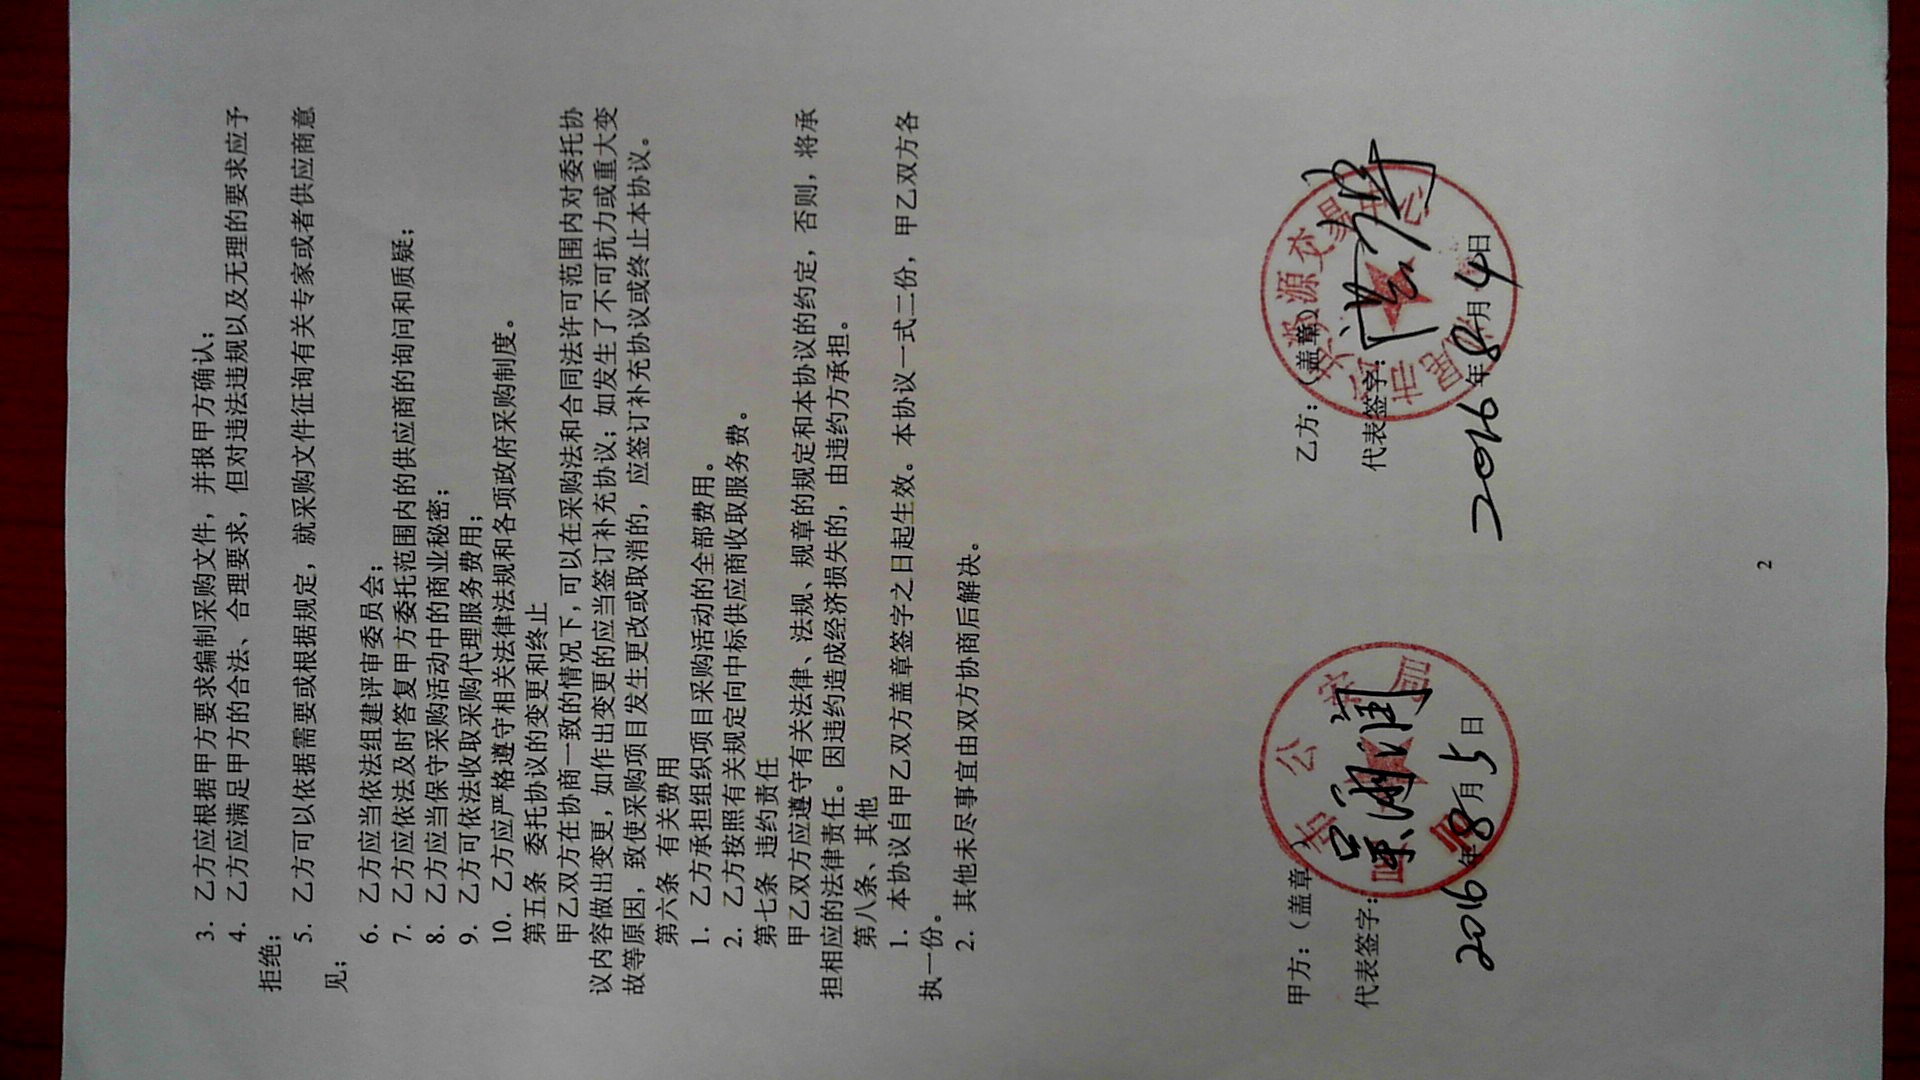 3. 乙方应根据甲方要求编制采购文件，并报甲方确认；
4. 乙方应满足甲方的合法、合理要求，但对违法违规以及无理的要求应予
拒绝；
5. 乙方可以依据需要或根据规定，就采购文件征询有关专家或者供应商意
见；
6. 乙方应当依法组建评审委员会；
7. 乙方应依法及时答复甲方委托范围内的供应商的询问和质疑；
8. 乙方应当保守采购活动中的商业秘密；
9. 乙方可依法收取采购代理服务费用；
10. 乙方应严格遵守相关法律法规和各项政府采购制度。
第五条 委托协议的变更和终止
甲乙双方在协商一致的情况下，可以在采购法和合同法许可范围内对委托协
议内容做出变更，如作出变更的应当签订补充协议；如发生了不可抗力或重大变
故等原因，致使采购项目发生更改或取消的，应签订补充协议或终止本协议。
第六条 有关费用
1. 乙方承担组织项目采购活动的全部费用。
2. 乙方按照有关规定向中标供应商收取服务费。
第七条 违约责任
甲乙双方应遵守有关法律、法规、规章的规定和本协议的约定，否则，将承
担相应的法律责任。因违约造成经济损失的，由违约方承担。
第八条、其他
1. 本协议自甲乙双方盖章签字之日起生效。本协议一式二份，甲乙双方各
执一份。
2. 其他未尽事宜由双方协商后解决。
甲方：（盖章）
代表签字：
2016年8月5日
乙方：（盖章）
代表签字：
2016年8月4日
2